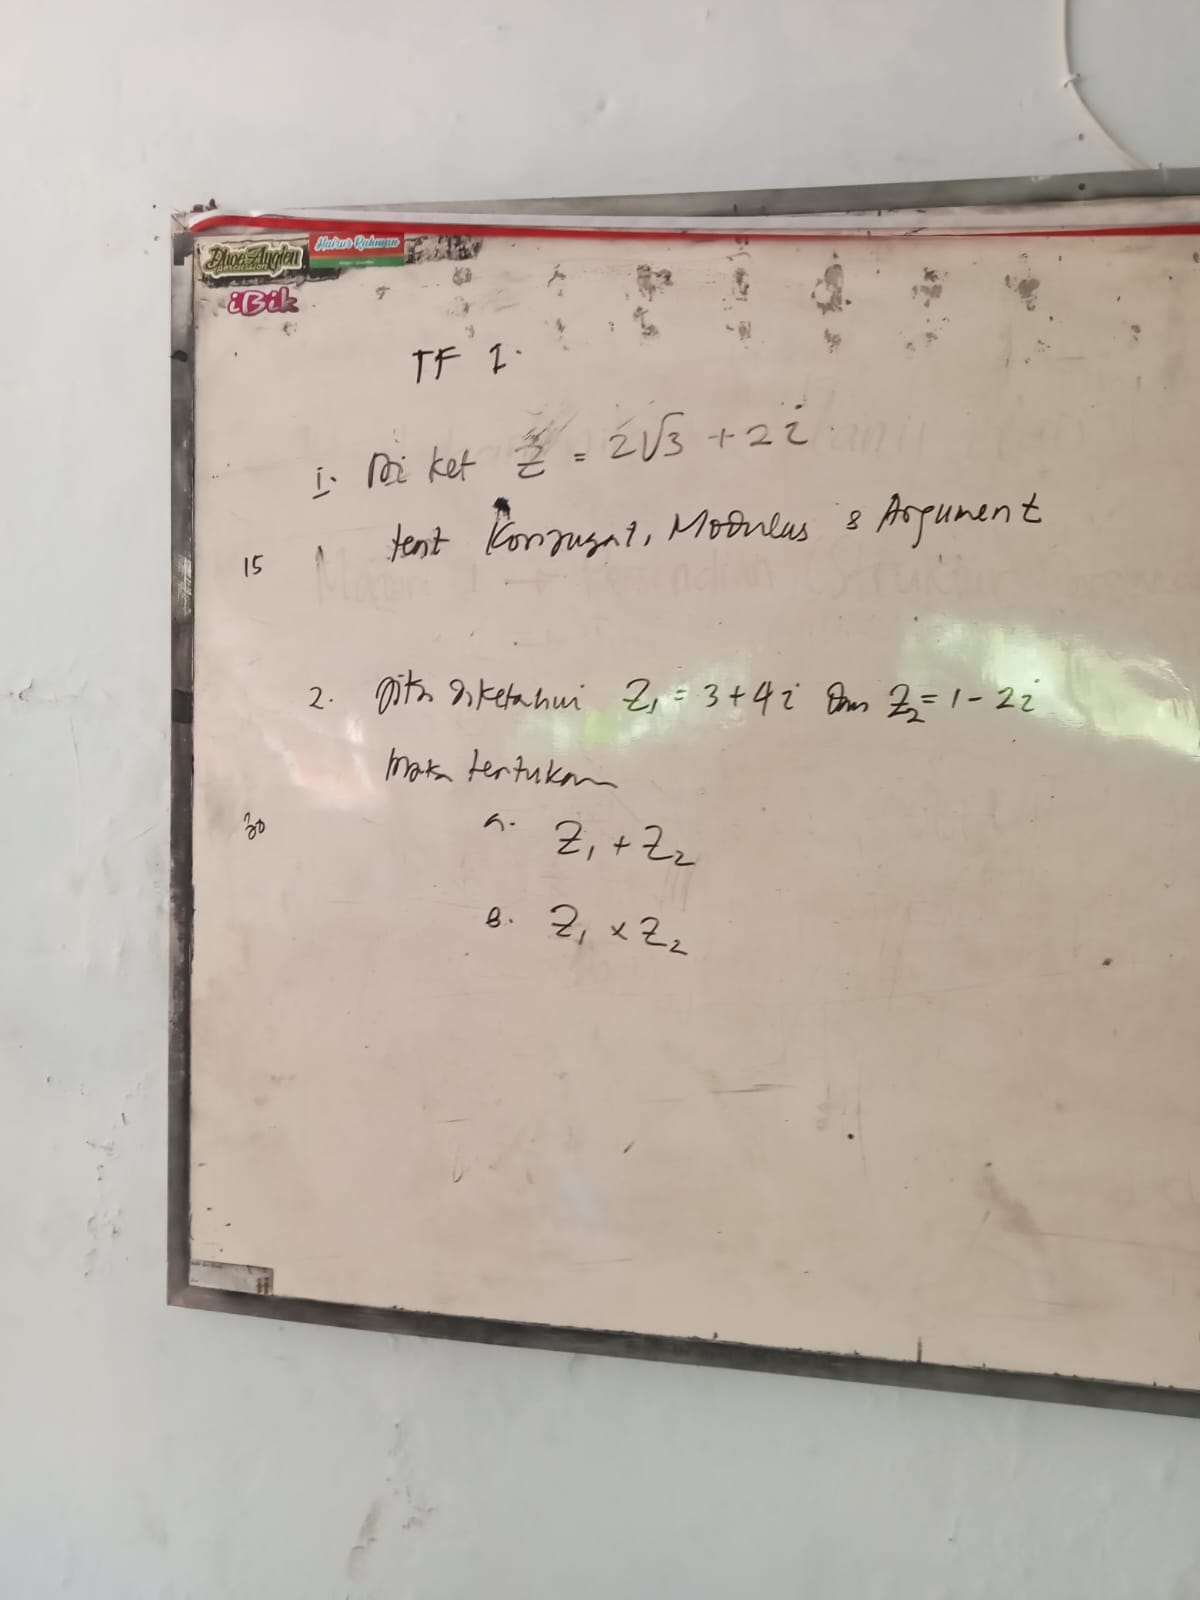 Dhoe Anglen
Hairur Rahman
iBik
TF I.
1. Diket Z = 2√3 + 2i
tent Konjugat, Modulus & Argument
15
2. Jika diketahui Z₁ = 3 + 4i dan Z₂ = 1 - 2i
maka tentukan
30
a. Z₁ + Z₂
B. Z₁ x Z₂